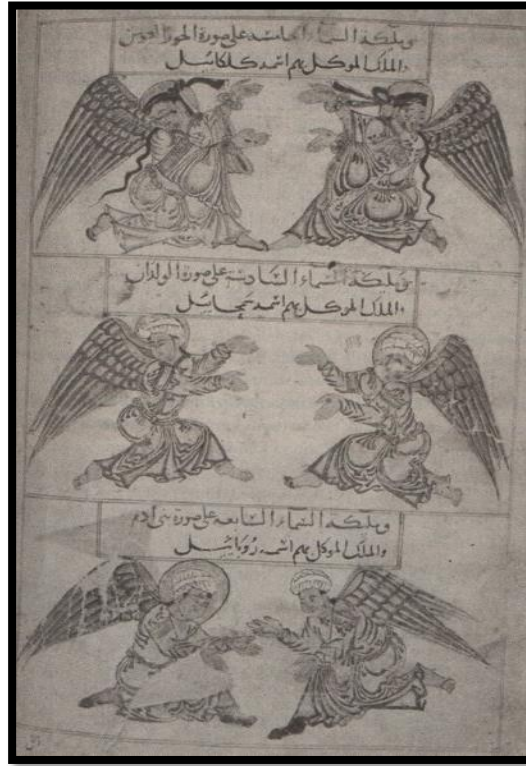 وملئكة السماء الخامسة على صورة الحور العين
والملك الموكل بهم اسمه كلكائيل
وملئكة السماء السادسة على صورة الولدان
والملك الموكل بهم اسمه سمحائيل
وملئكة السماء السابعة على صورة بنى ادم
والملك الموكل بهم اسمه روبائيل